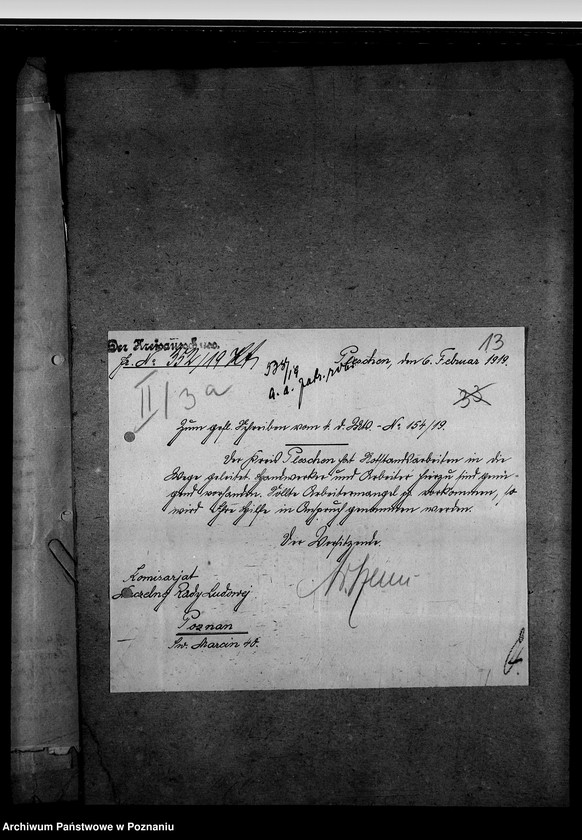 13
Der Kreisausschuss.
J. No 352/19 KA
Pleschen, den 6. Februar 1919.
538/19
a. a.
II/3a
33
Zum gefl. Schreiben vom 1. d. Mts - No 154/19.
Der Kreis Pleschen hat Notstandsarbeiten in die
Wege geleitet. Handwerker und Arbeiter hierzu sind genü-
gend vorhanden. Sollte Arbeitermangel pp vorkommen, so
wird Ihre Hilfe in Anspruch genommen werden.
Der Vorsitzende.
Komisarjat
Naczelnej Rady Ludowej
Poznan
Sw. Marcin 40.
Archiwum Państwowe w Poznaniu